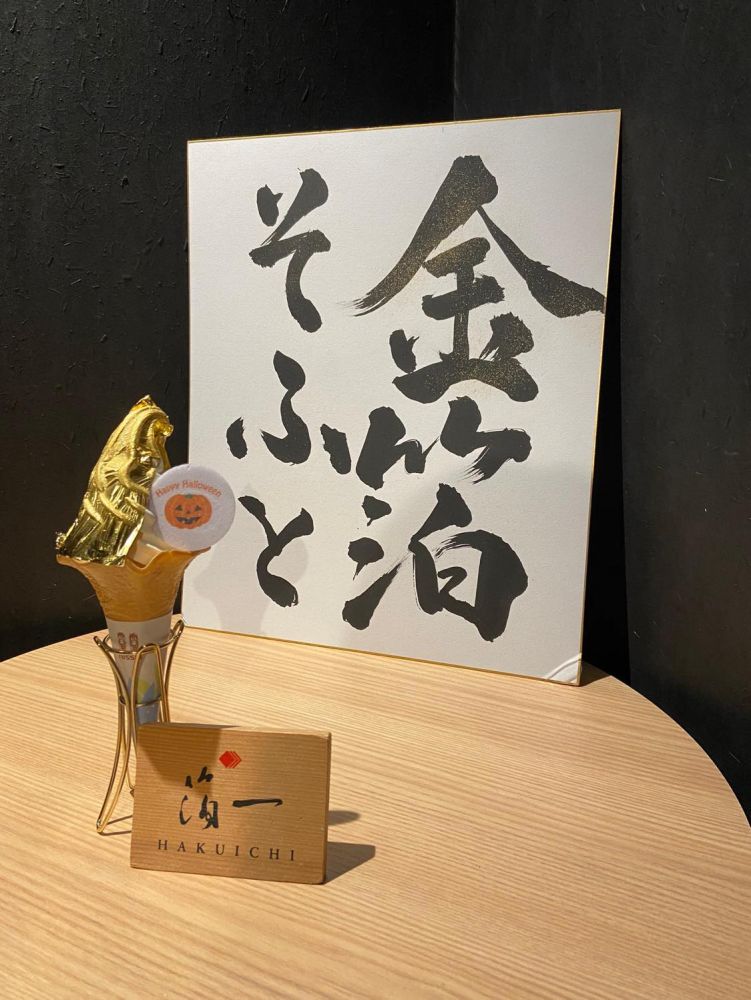 金箔
そふと
Happy Halloween
箔一
HAKUICHI